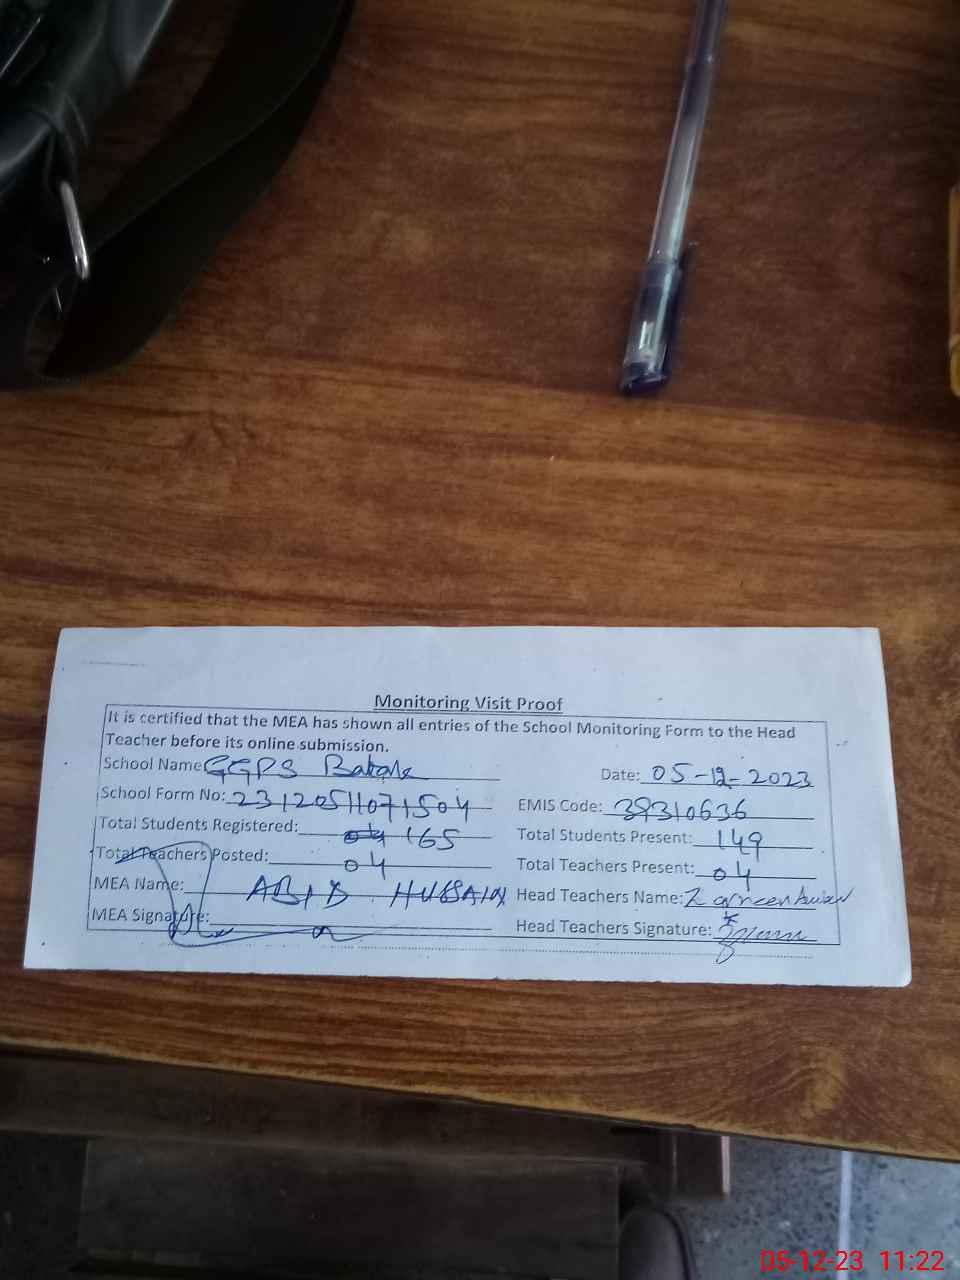 Monitoring Visit Proof
It is certified that the MEA has shown all entries of the School Monitoring Form to the Head
Teacher before its online submission.
School Name GGPS Date: 05-12-2023
School Form No: 23120511071504 EMIS Code: 39310636
Total Students Registered: 165 Total Students Present: 149
Total Teachers Posted: 04 Total Teachers Present: 04
MEA Name: ABID HUSSAIN Head Teachers Name: Zarneen
MEA Signature: Head Teachers Signature:
05-12-23 11:22